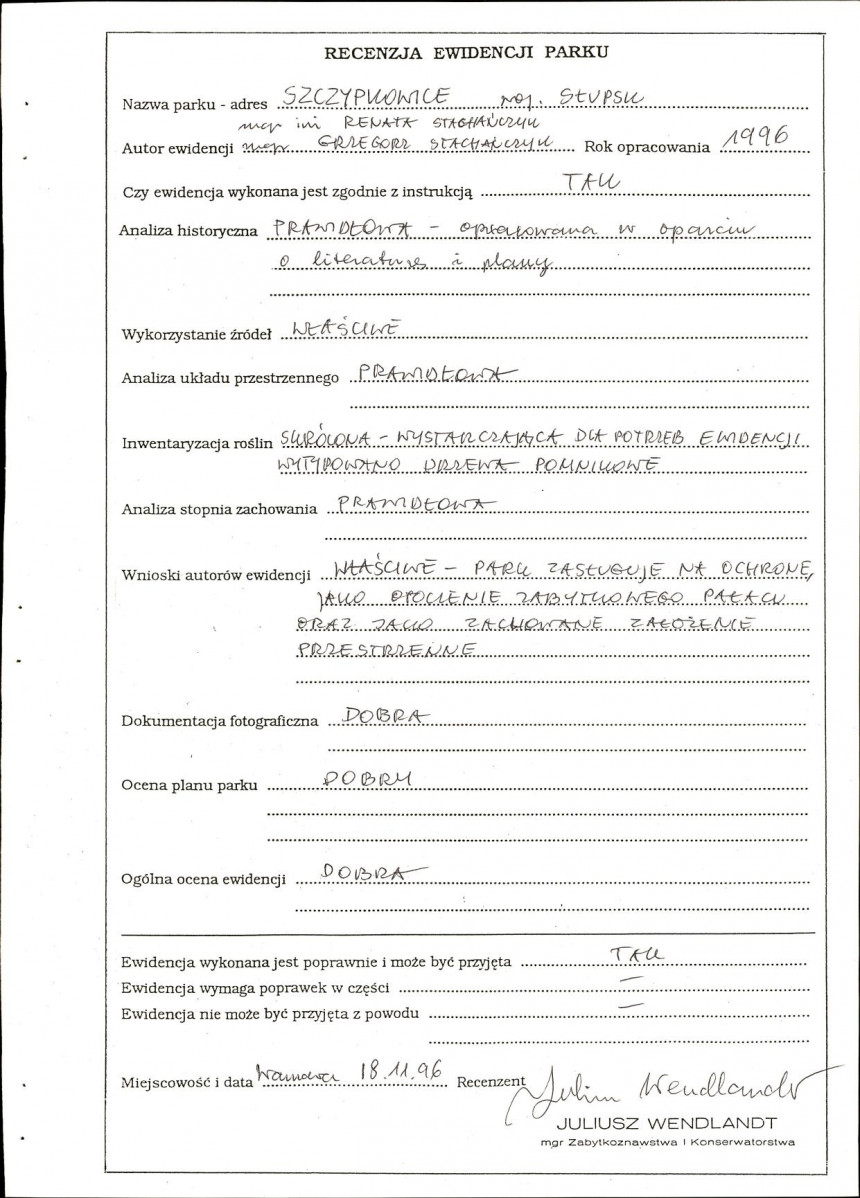 RECENZJA EWIDENCJI PARKU
Nazwa parku - adres SZCZYPKOWICE woj. SŁUPSK
mgr inż RENATA STACHAŃCZYK
Autor ewidencji mgr GRZEGORZ STACHAŃCZYK Rok opracowania 1996
Czy ewidencja wykonana jest zgodnie z instrukcją TAK
Analiza historyczna PRAWIDŁOWA - opracowana w oparciu
o literaturę i plany
Wykorzystanie źródeł WŁAŚCIWE
Analiza układu przestrzennego PRAWIDŁOWA
Inwentaryzacja roślin SKRÓCONA - WYSTARCZAJĄCA DLA POTRZEB EWIDENCJI
WYTYPOWANO DRZEWA POMNIKOWE
Analiza stopnia zachowania PRAWIDŁOWA
Wnioski autorów ewidencji WŁAŚCIWE - PARK ZASŁUGUJE NA OCHRONĘ,
JAKO OTOCZENIE ZABYTKOWEGO PAŁACU
ORAZ JAKO ZACHOWANE ZAŁOŻENIE
PRZESTRZENNE
Dokumentacja fotograficzna DOBRA
Ocena planu parku DOBRY
Ogólna ocena ewidencji DOBRA
Ewidencja wykonana jest poprawnie i może być przyjęta TAK
Ewidencja wymaga poprawek w części —
Ewidencja nie może być przyjęta z powodu —
Miejscowość i data Warszawa 18.11.96 Recenzent Juliusz Wendlandt
JULIUSZ WENDLANDT
mgr Zabytkoznawstwa i Konserwatorstwa